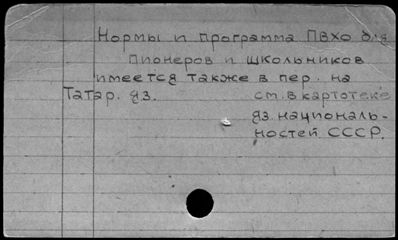 Нормы и программа ПВХО для
Пионеров и школьников
имеется также в пер. на
Татар. яз. см. в картотеке
яз. националь-
ностей СССР.